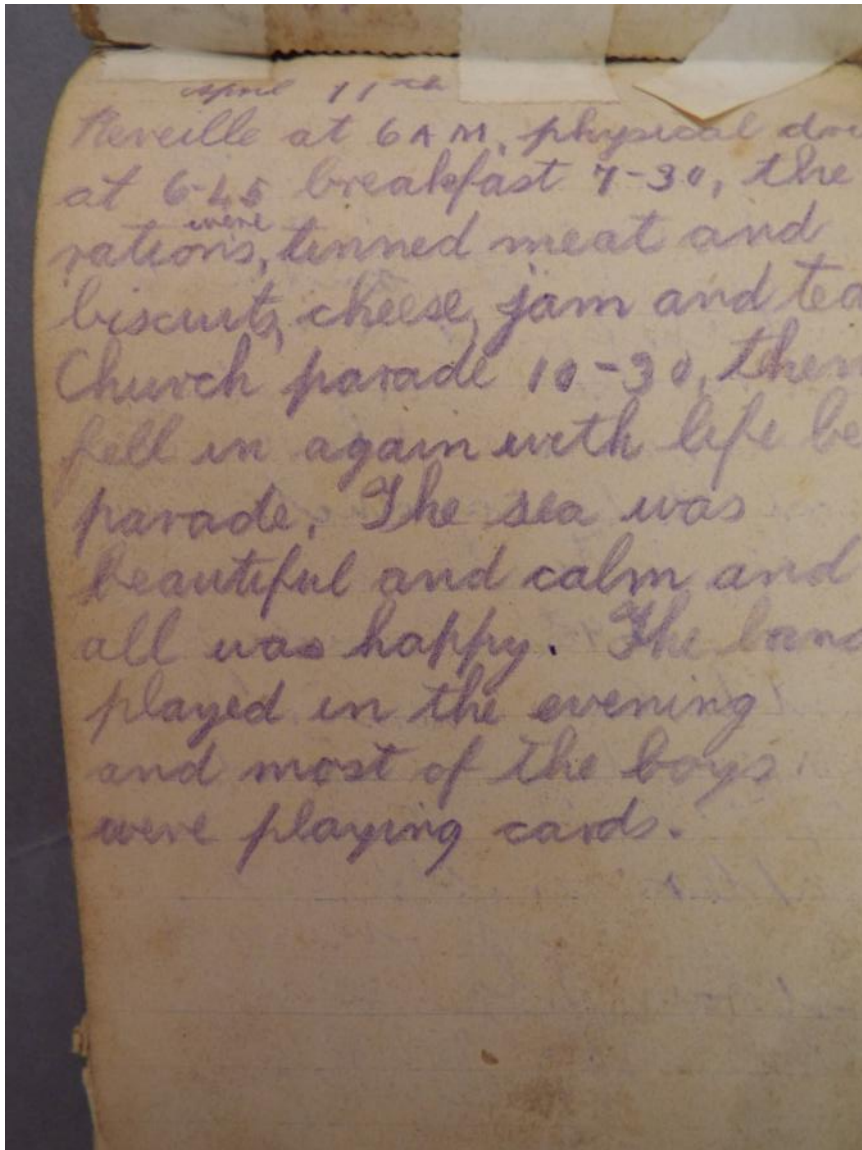 April 11th
Reveille at 6 AM, physical
at 6-45 breakfast 7-30, the
were
rations, tinned meat and
biscuits, cheese, jam and tea
Church parade 10-30, then
fell in again with life
parade. The sea was
beautiful and calm and
all was happy. The band
played in the evening
and most of the boys
were playing cards.